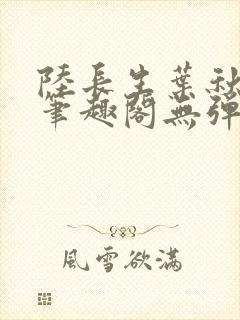 陸長生葉秋
筆趣閣無彈
風雪欲滿